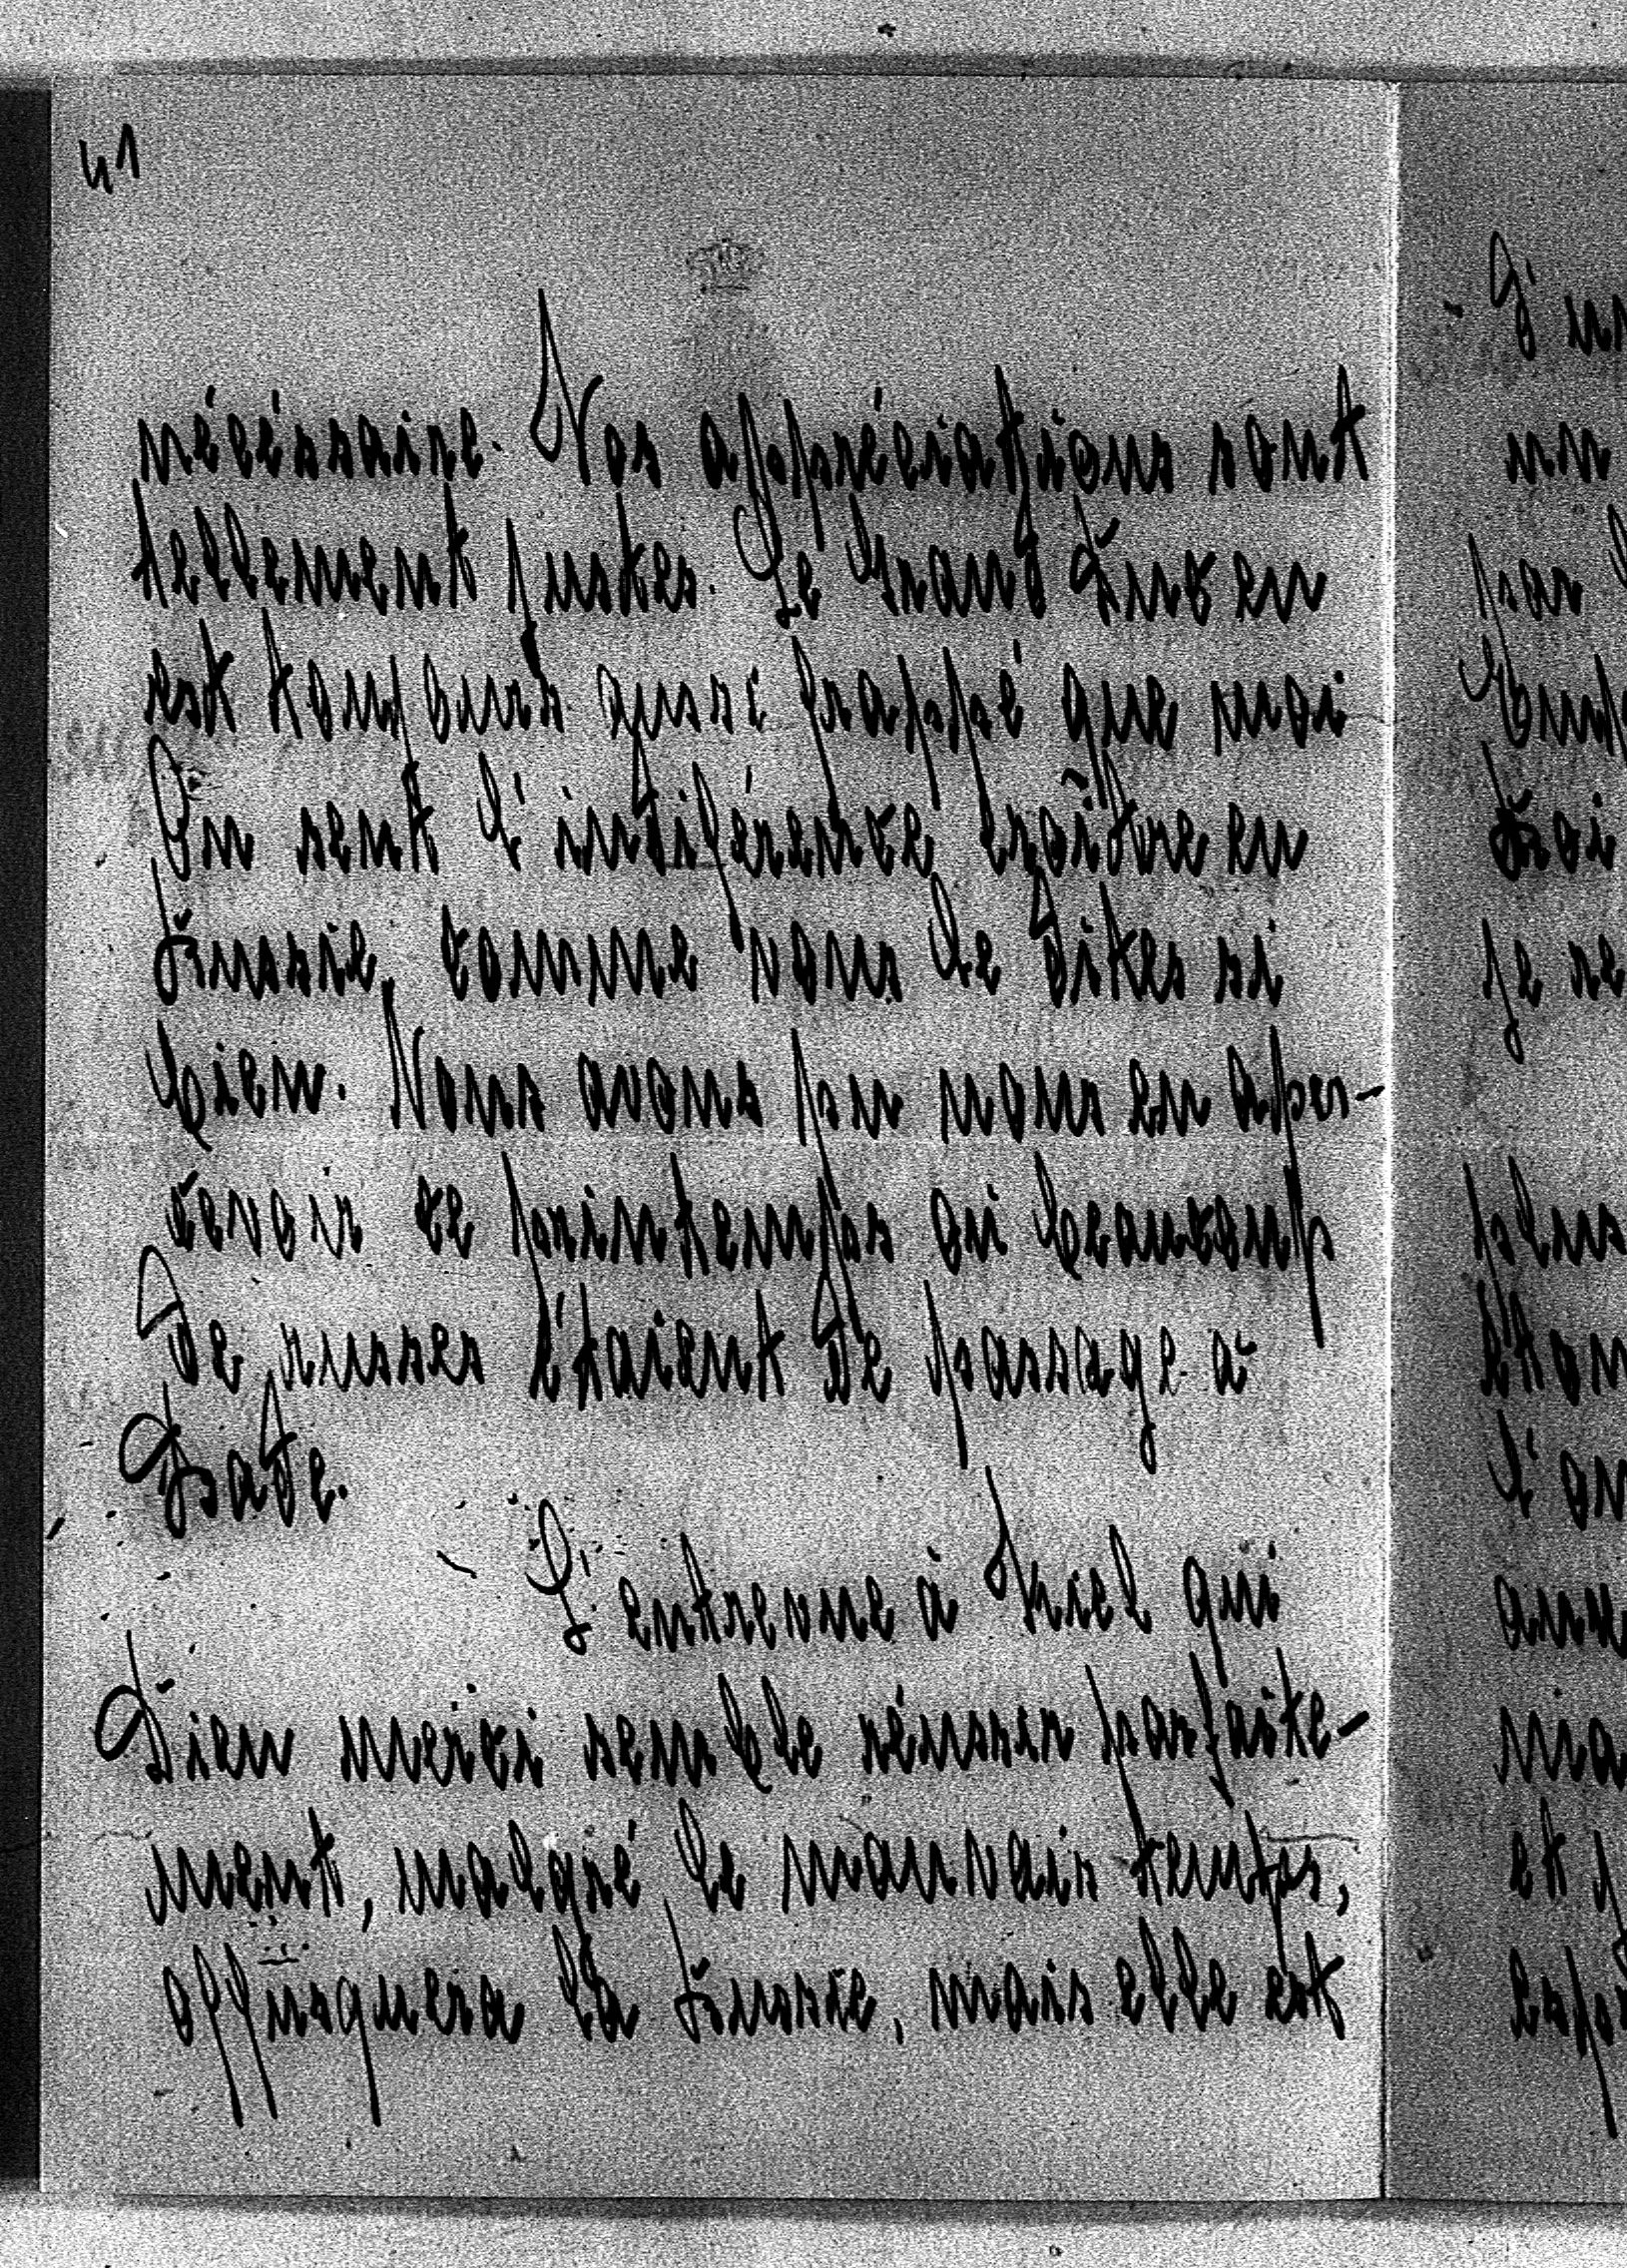 41
nécéssaire. Vos appréciations sont
tellement justes. Le Grand Duc en
est toujours aussi frappé que moi
On sent l'indiférence croître en
Russie, comme vous le dites si
bien. Nous avons pu nous en aper-
cevoir ce printemps où beaucoup
de russes étaient de passage à
Bade.
L'entrevue à Kiel qui
Dieu merci semble réussir parfaite-
ment, malgré le mauvais temps,
offusquera la Russie, mais elle est